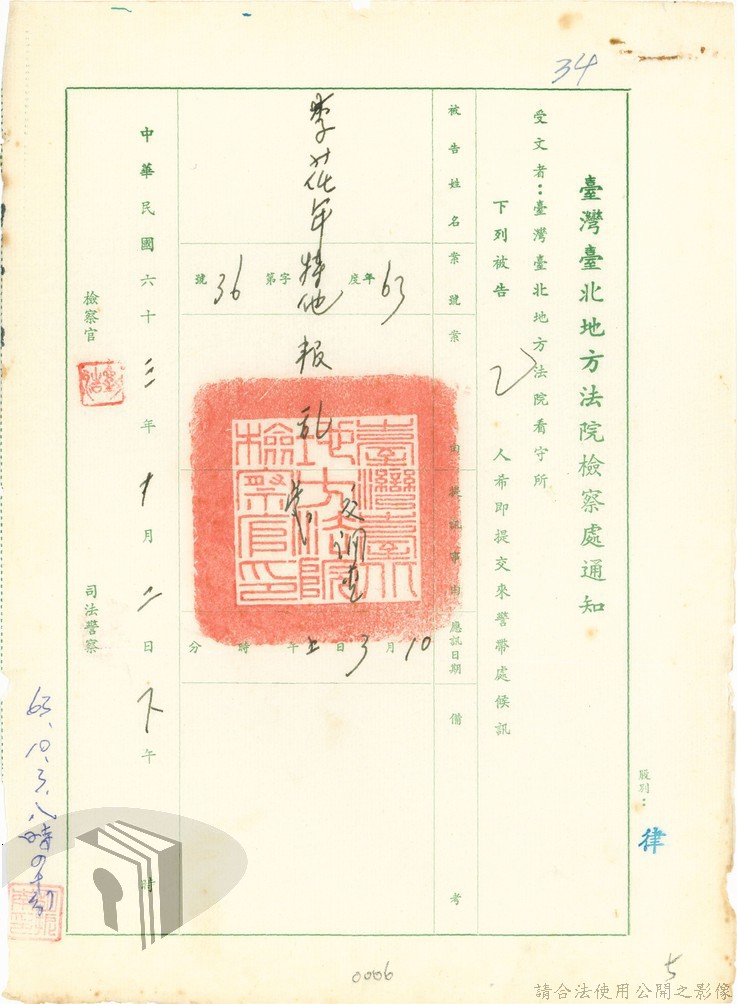 34
臺灣臺北地方法院檢察處通知
受文者：臺灣臺北地方法院看守所
下列被告 乙 人希即提交來警帶處候訊
被告姓名
案號
案由
提訊事由
應訊日期
備考
63年度 字第 36 號
李
年
報
調查
10月3日上午 時 分
中華民國六十三年十月二日下午 時
檢察官
司法警察
臺灣臺北地方法院檢察官印
63.10.3.八時四十分
股別：
律
0006
5
請合法使用公開之影像